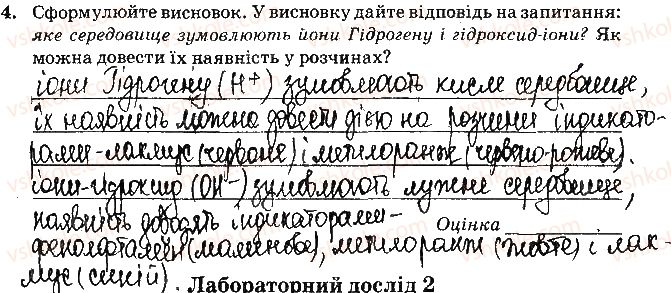 4. Сформулюйте висновок. У висновку дайте відповідь на запитання:
яке середовище зумовлюють йони Гідрогену і гідроксид-іони? Як
можна довести їх наявність у розчинах?
іони Гідрогену (H+) зумовлюють кисле середовище,
їх наявність можна довести дією на розчини індикато-
рами-лакмус (червоне) і метилоранж (червоно-рожеве).
іони-гідроксид (OH-) зумовлюють лужне середовище,
наявність доводять індикаторами-
Оцінка
фенолфталеїн (малинове), метилоранж (жовте) і лак-
мус (синій).
Лабораторний дослід 2